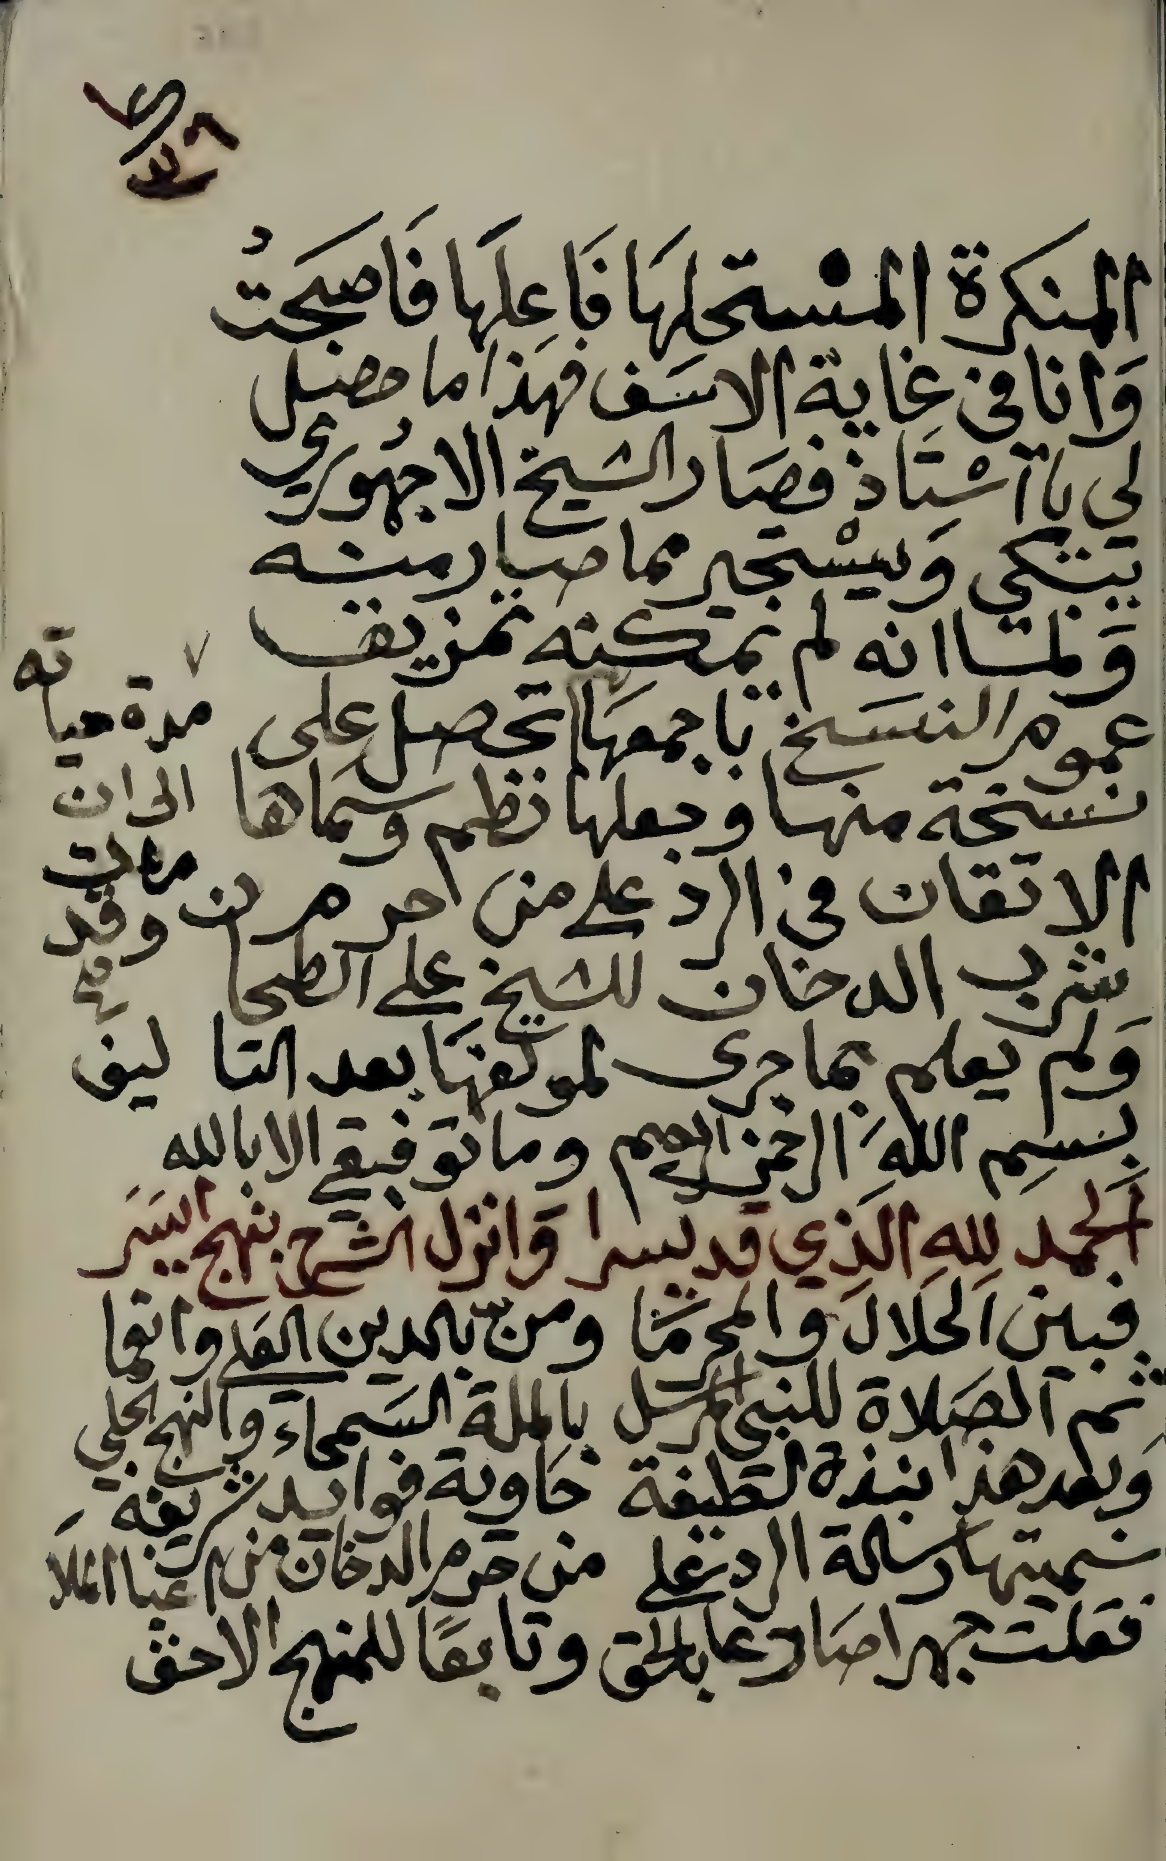 المنكرة المسْتحلهَا فَاعِلهَا فَاصبَحتُ
وَانا في غاية الاسَف فهذا ما حصل
لي يا آسْتَاذ فصَار الشيخ الاجهُوري
يتبكي وَيسْتجير مما صار مينه
وَلمَّا انه لم يمكنه تمزيق
عموم النسَخ باجمعهَا تحصل على
نسخة منها وجعلها نظم وسَمَاها
الاتقان في الرد على من حرم
شرب الدخان للشيخ على
وَلم يعلم بما جرى لمولفهَا بعد التاليف
بسمِ اللهَ الرحمن الرحيم وما توفيقي الا بالله
اَلحمد لِلهِ الذِي قد يسرا وَانزل الشرح بنهج اليسَر
فبين اَلحَلالَ والمحرمَا ومنّ بالدين العلي وانعما
ثم الصَلاة للنبي المرسل بالملة السَمحاء والنهج الجلي
وَبعد هذا نبذة لطيفة حَاوية فوايد شريفة
سَميتها رسَالة الرد على من حرم الدخان من
فقلت جهرا صَادعا بالحق وتابعًا للمنهج الاحق
٧ مدة حياته
الى ان
مات
وقد